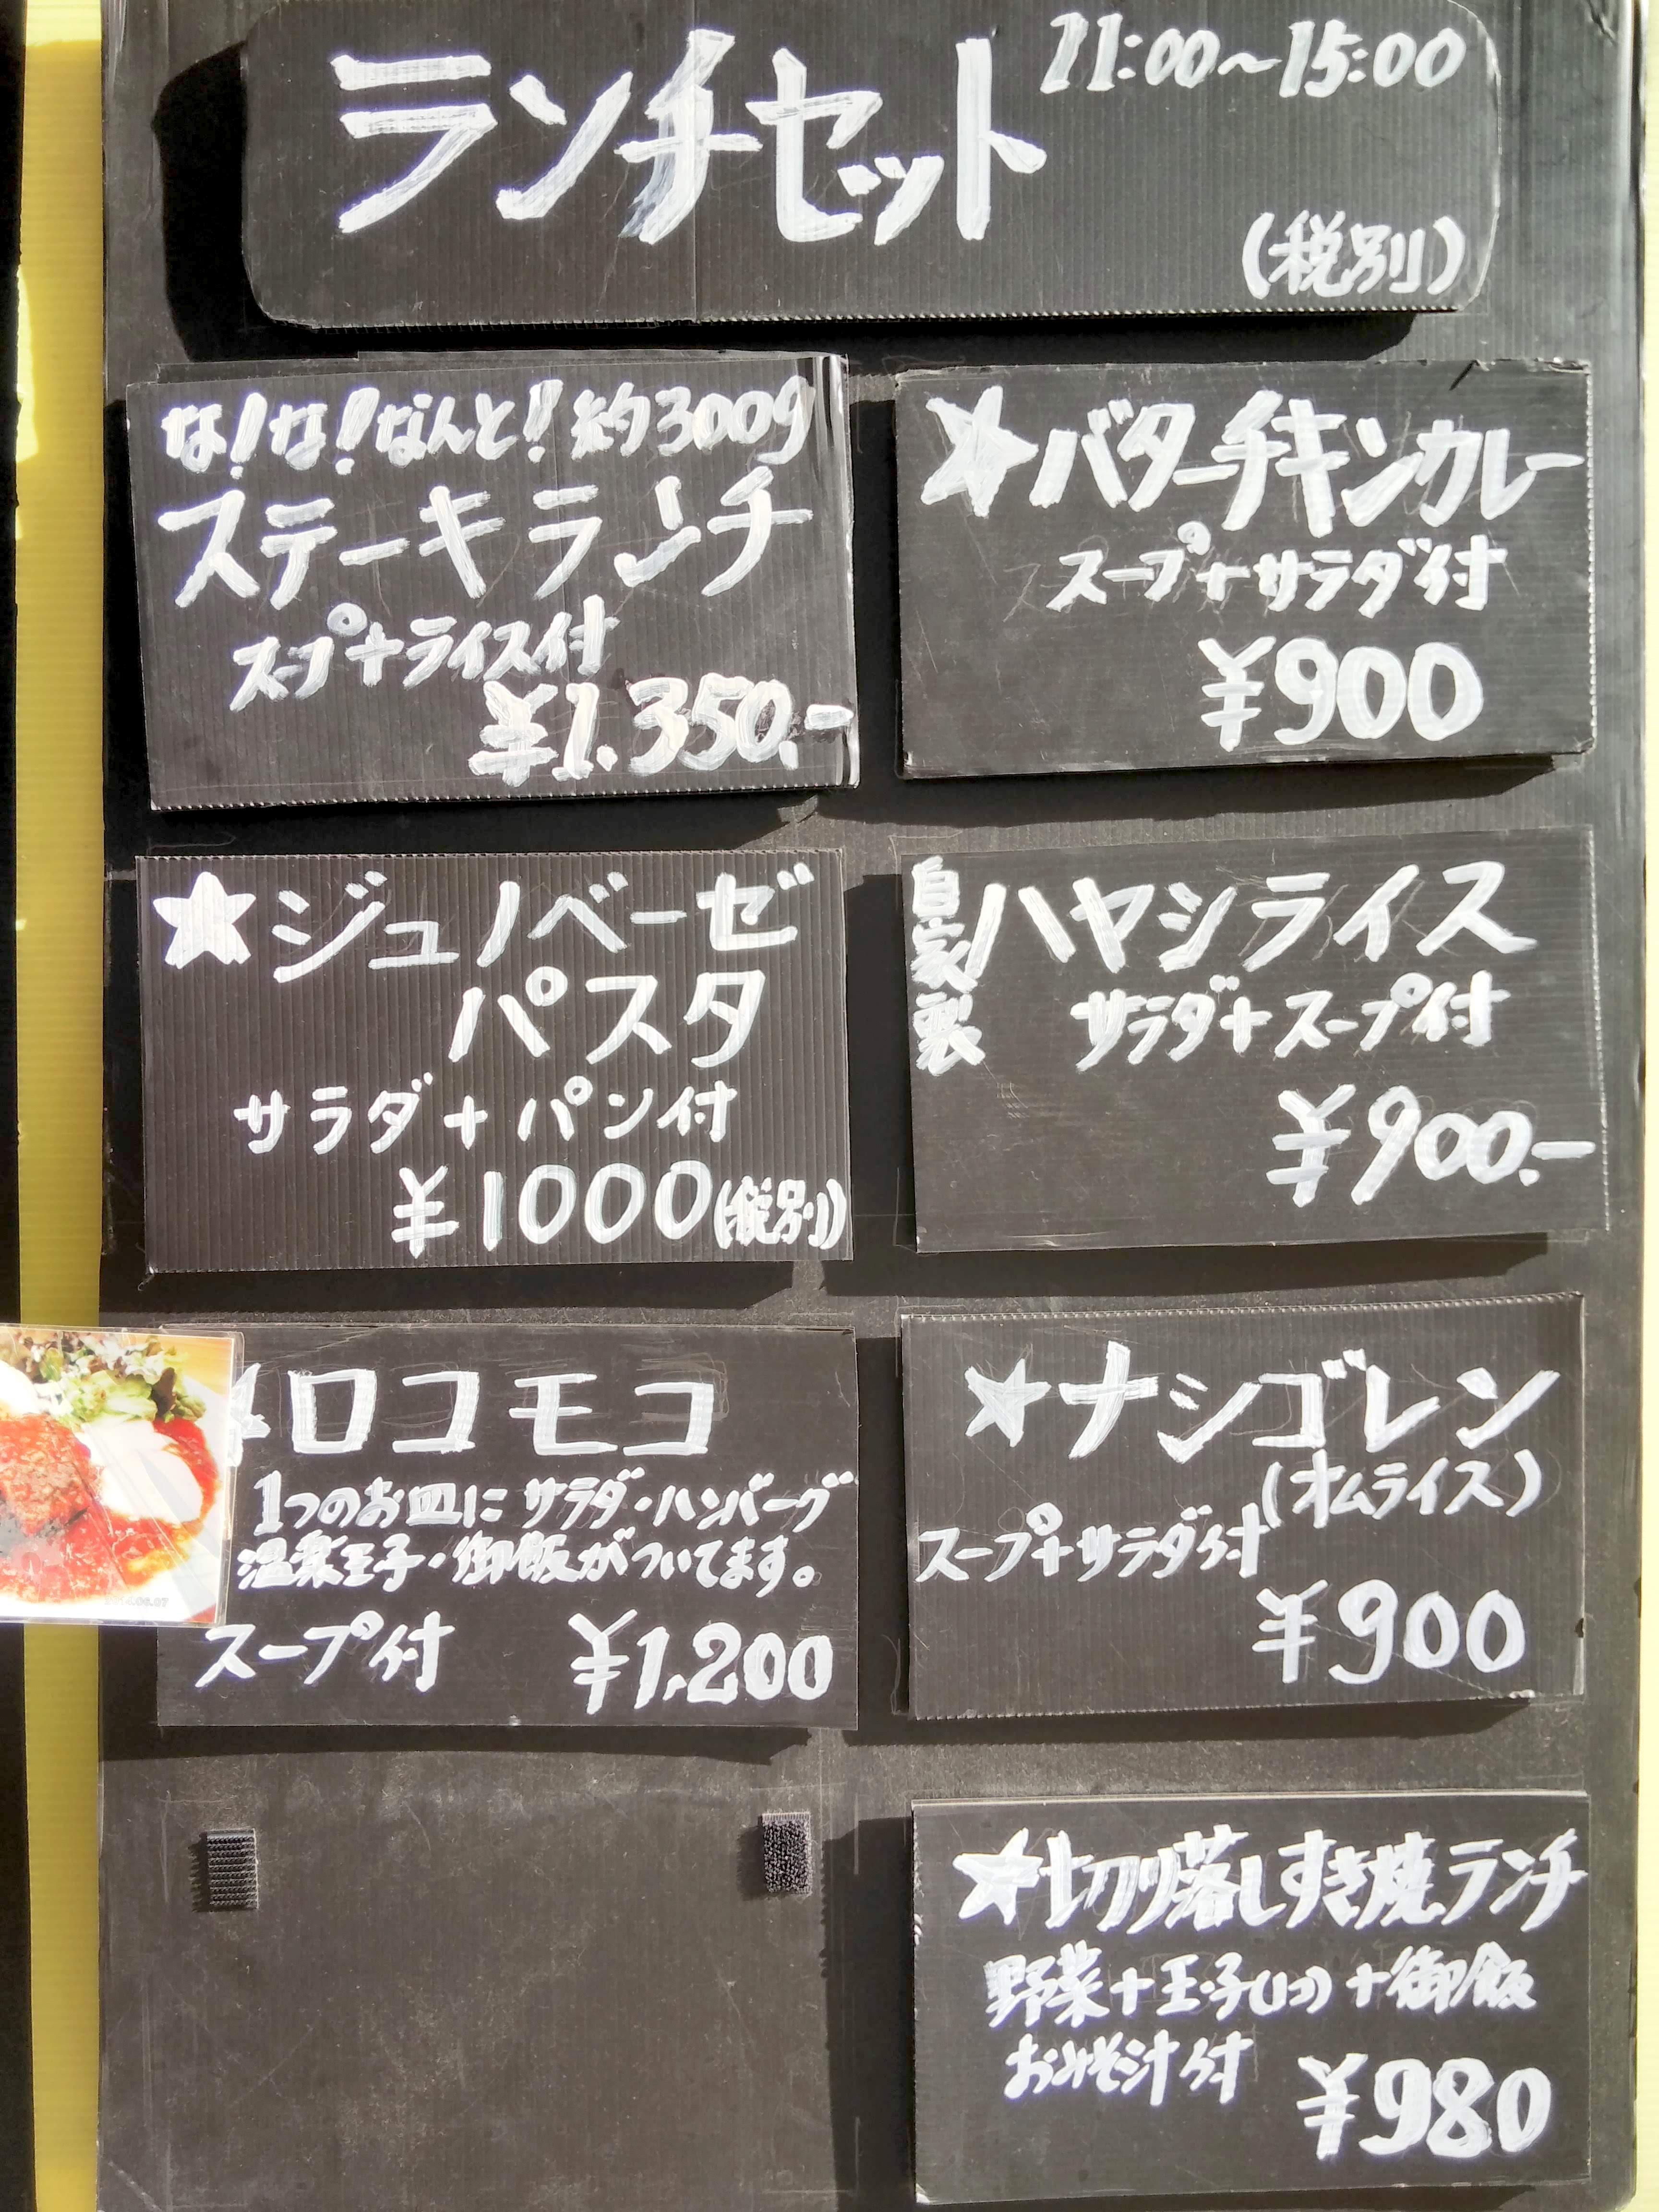 ランチセット 11:00〜15:00
(税別)
な!な!なんと!!約300g
ステーキランチ
スープ+ライス付
¥1.350.-
★バターチキンカレー
スープ+サラダ付
¥900
★ジェノベーゼ
パスタ
サラダ+パン付
¥1000(税別)
自家製ハヤシライス
サラダ+スープ付
¥900.-
ロコモコ
1つのお皿にサラダ・ハンバーグ
温泉玉子・御飯がついてます。
スープ付 ¥1,200
★ナシゴレン
(オムライス)
スープ+サラダ付
¥900
★切り落しすき焼ランチ
野菜+玉子(1コ)+御飯
おみそ汁付 ¥980